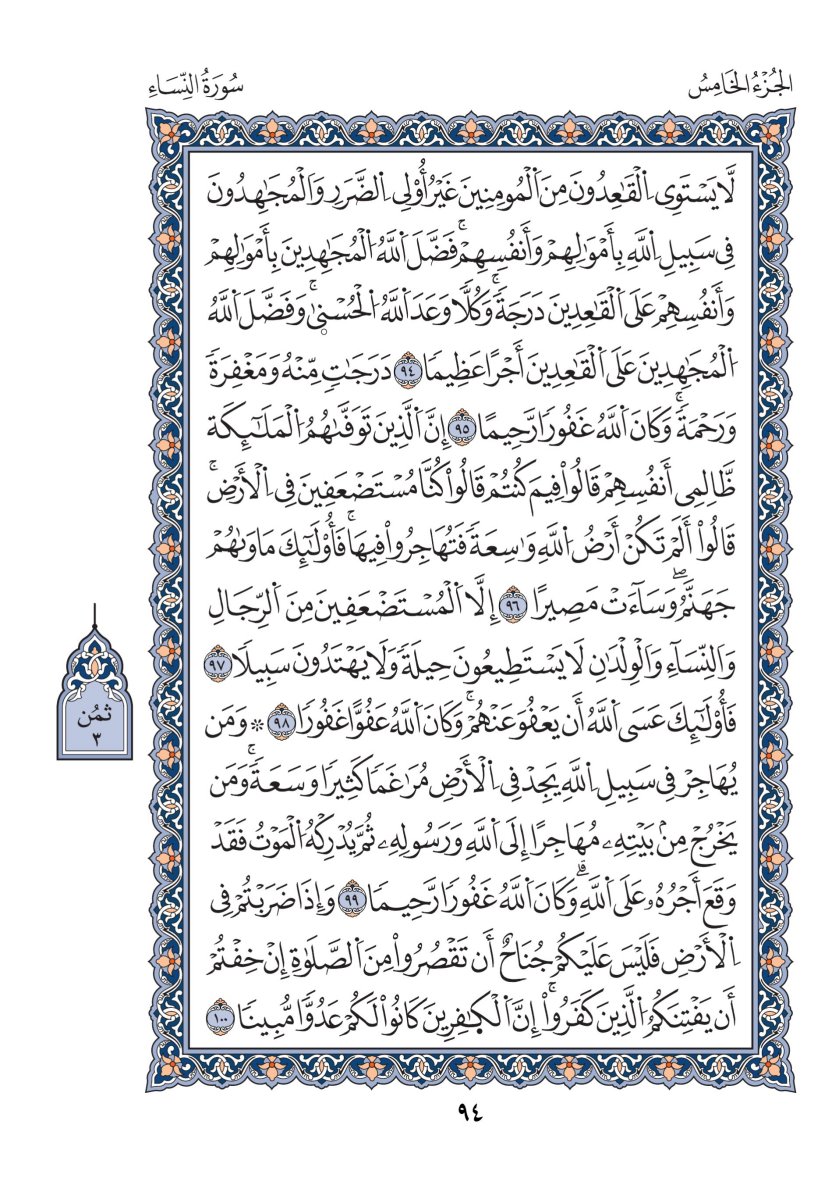 الجُزْءُ الخَامِسُ
سُورَةُ النِّسَاءِ
لَّا يَسْتَوِے اِ۬لْقَٰعِدُونَ مِنَ اَ۬لْمُومِنِينَ غَيْرُ أُوْلِے اِ۬لضَّرَرِ وَالْمُجَٰهِدُونَ
فِے سَبِيلِ اِ۬للَّهِ بِأَمْوَٰلِهِمْ وَأَنفُسِهِمْۚ فَضَّلَ اَ۬للَّهُ اُ۬لْمُجَٰهِدِينَ بِأَمْوَٰلِهِمْ
وَأَنفُسِهِمْ عَلَى اَ۬لْقَٰعِدِينَ دَرَجَةٗۚ وَكُلّٗا وَعَدَ اَ۬للَّهُ اُ۬لْحُسْن۪يٰۚ وَفَضَّلَ اَ۬للَّهُ
اُ۬لْمُجَٰهِدِينَ عَلَى اَ۬لْقَٰعِدِينَ أَجْراً عَظِيماٗ ٩٤ دَرَجَٰتٖ مِّنْهُ وَمَغْفِرَةٗ
وَرَحْمَةٗۚ وَكَانَ اَ۬للَّهُ غَفُوراٗ رَّحِيماًۖ ٩٥ إِنَّ اَ۬لذِينَ تَوَفَّيٰهُمُ اُ۬لْمَلَٰٓئِكَةُ
ظَالِمِے أَنفُسِهِمْ قَالُواْ فِيمَ كُنتُمْ قَالُواْ كُنَّا مُسْتَضْعَفِينَ فِے اِ۬لْأَرْضِۚ
قَالُوٓاْ أَلَمْ تَكُنْ أَرْضُ اُ۬للَّهِ وَٰسِعَةٗ فَتُهَاجِرُواْ فِيهَاۚ فَأُوْلَٰٓئِكَ مَأْو۪يٰهُمْ
جَهَنَّمُۖ وَسَآءَتْ مَصِيراً ٩٦ إِلَّا اَ۬لْمُسْتَضْعَفِينَ مِنَ اَ۬لرِّجَالِ
وَالنِّسَآءِ وَالْوِلْدَٰنِ لَا يَسْتَطِيعُونَ حِيلَةٗ وَلَا يَهْتَدُونَ سَبِيلاٗ ٩٧
فَأُوْلَٰٓئِكَ عَسَى اَ۬للَّهُ أَنْ يَعْفُوَ عَنْهُمْۚ وَكَانَ اَ۬للَّهُ عَفُوّاً غَفُوراٗ ٩٨ ۞ وَمَن
يُهَاجِرْ فِے سَبِيلِ اِ۬للَّهِ يَجِدْ فِے اِ۬لْأَرْضِ مُرَٰغَماٗ كَثِيراٗ وَسَعَةٗۚ وَمَن
يَخْرُجْ مِنۢ بَيْتِهِۦ مُهَاجِراً إِلَى اَ۬للَّهِ وَرَسُولِهِۦ ثُمَّ يُدْرِكْهُ اُ۬لْمَوْتُ فَقَدْ
وَقَعَ أَجْرُهُۥ عَلَى اَ۬للَّهِۗ وَكَانَ اَ۬للَّهُ غَفُوراٗ رَّحِيماٗ ٩٩ وَإِذَا ضَرَبْتُمْ فِے
اِ۬لْأَرْضِ فَلَيْسَ عَلَيْكُمْ جُنَاحٌ أَن تَقْصُرُواْ مِنَ اَ۬لصَّلَوٰةِ إِنْ خِفْتُمُ
أَنْ يَفْتِنَكُمُ اُ۬لذِينَ كَفَرُوٓاْۚ إِنَّ اَ۬لْكٰ۪فِرِينَ كَانُواْ لَكُمْ عَدُوّاٗ مُّبِيناٗ ١٠٠
ثمُن
٣
٩٤